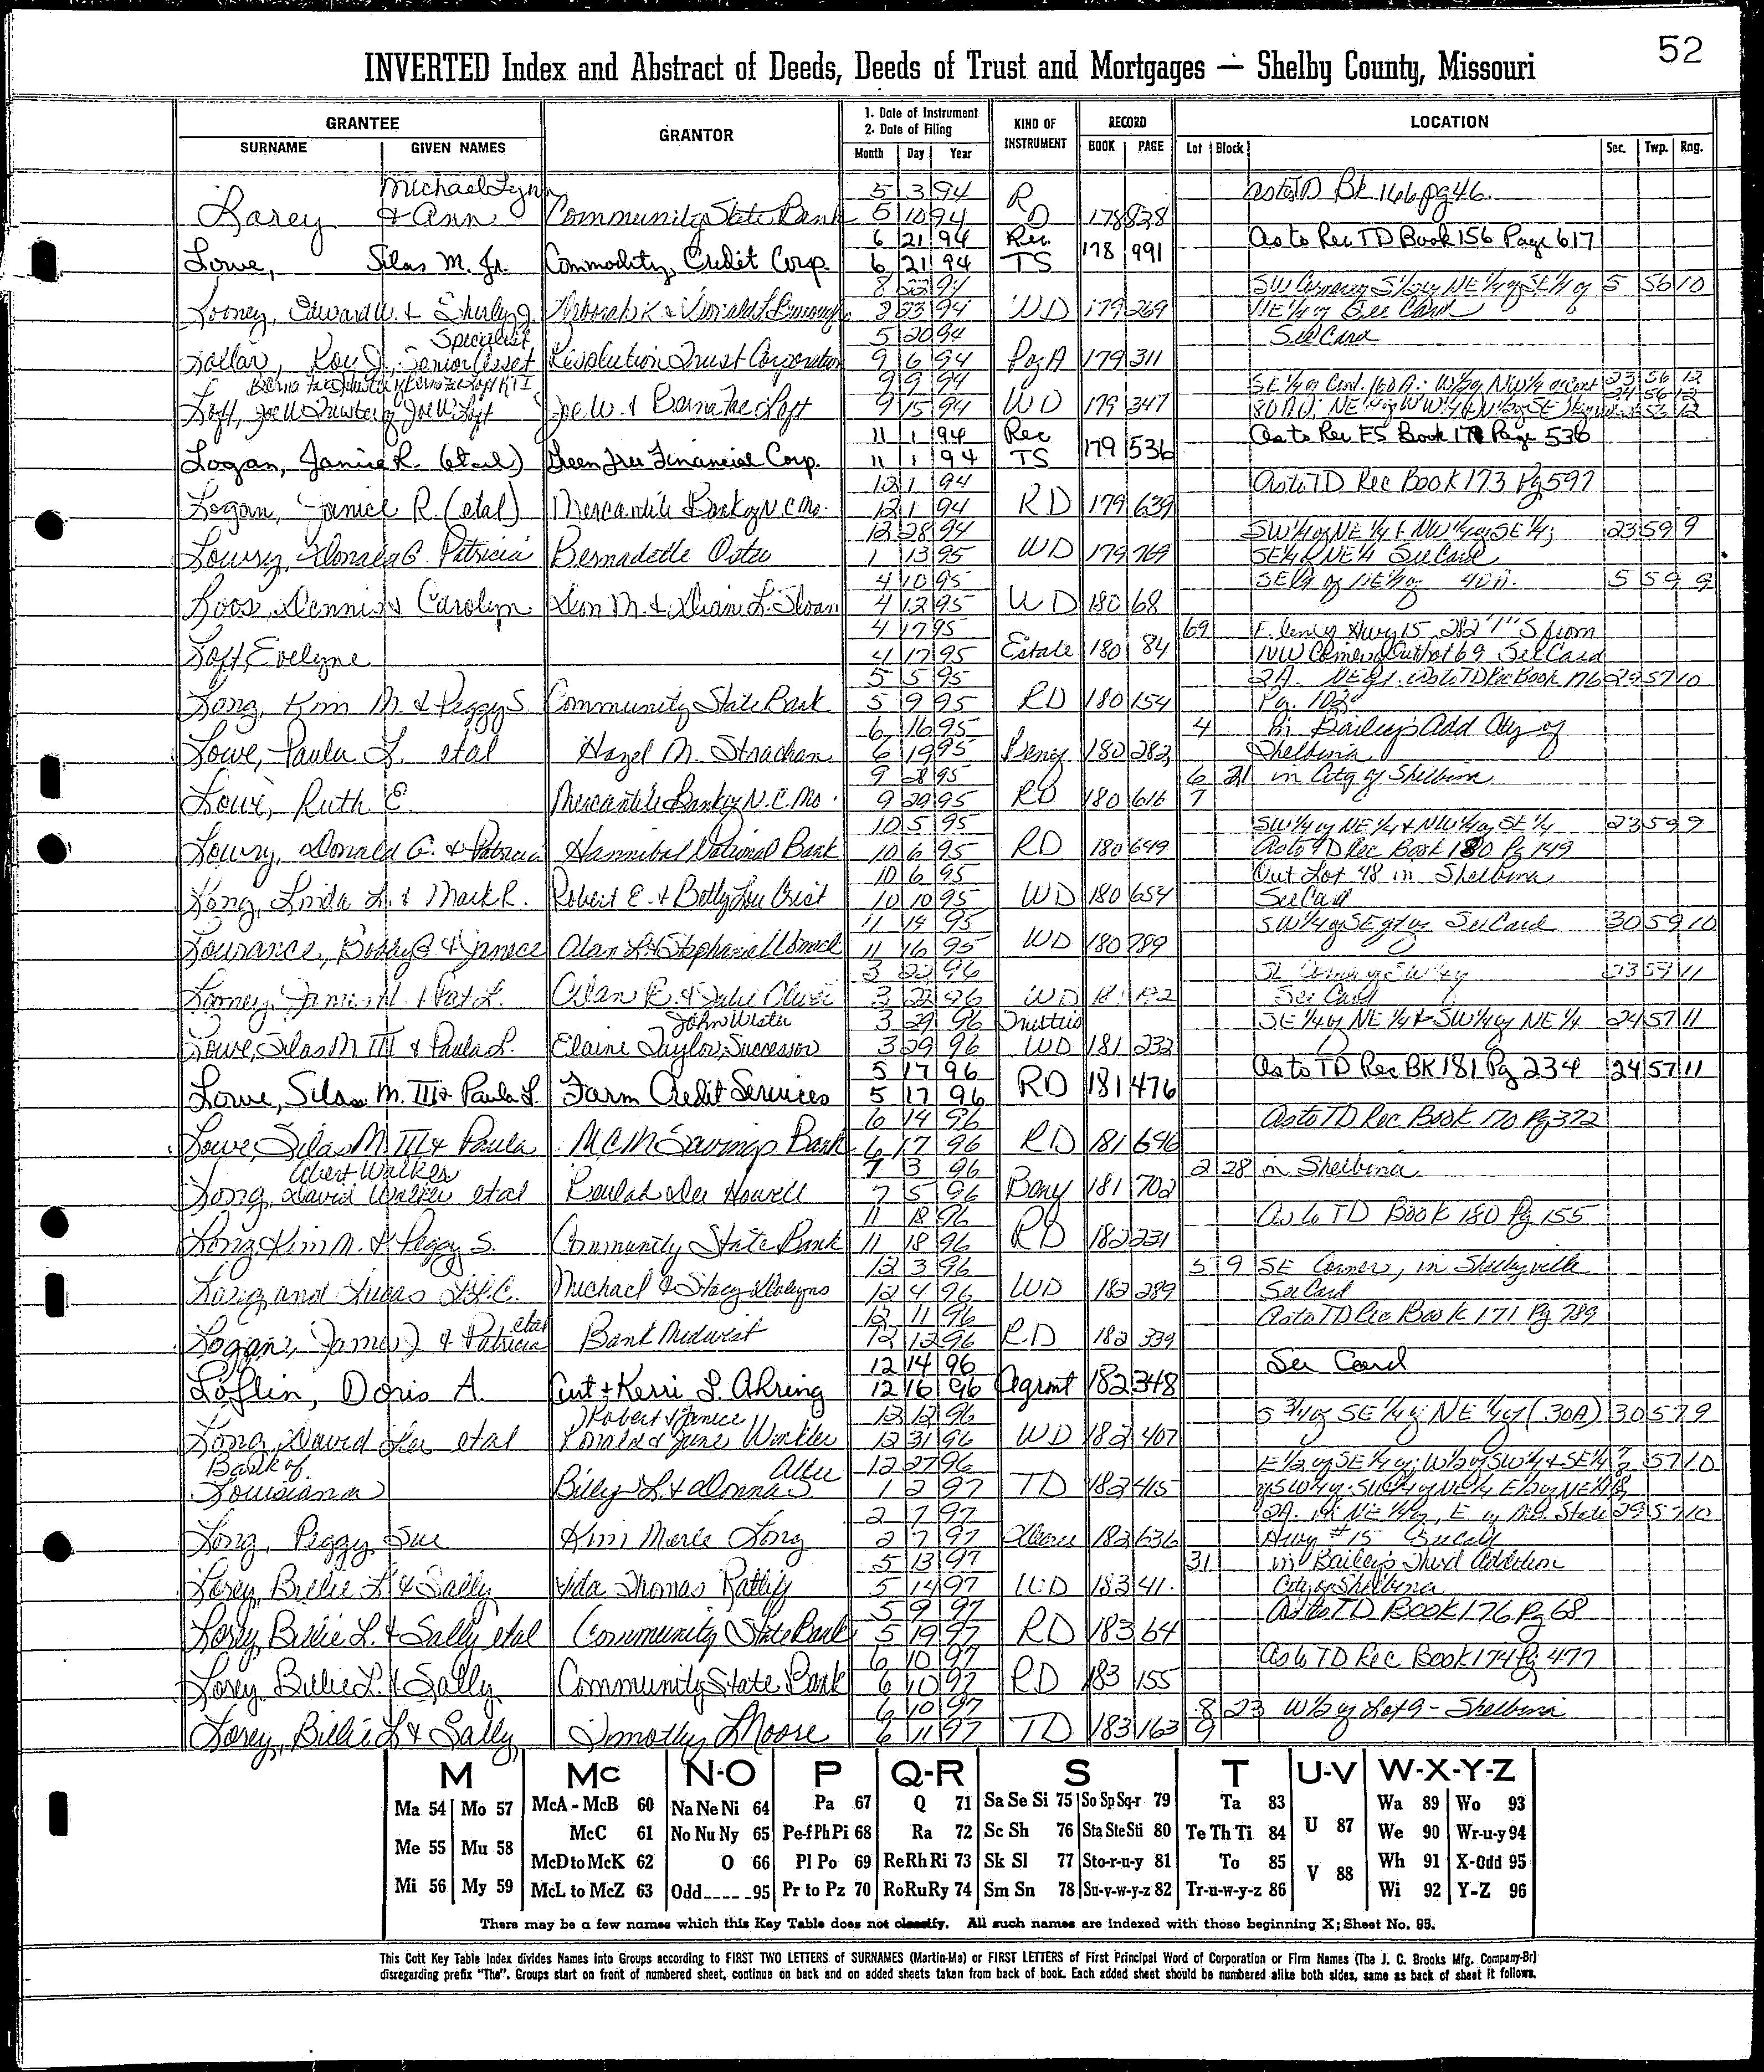 52
INVERTED Index and Abstract of Deeds, Deeds of Trust and Mortgages — Shelby County, Missouri
GRANTEE GRANTOR 1. Date of Instrument 2. Date of Filing KIND OF INSTRUMENT RECORD LOCATION
SURNAME GIVEN NAMES Month Day Year BOOK PAGE Lot Block Sec. Twp. Rng.
Michael Lynn 5 3 94 R as to TD Bk 166 pg 46
Losey & Ann Community State Bank 5 10 94 D 178 828
6 21 94 Rec as to Rec TD Book 156 Page 617
Lowe, Silas M. Jr. Commodity Credit Corp. 6 21 94 TS 178 991
8 22 94 SW Corner S 1/2 of NE 1/4 of SE 1/4 of 5 56 10
Looney, Edward W. & Shirley J. 8 23 94 WD 179 269 NE 1/4 of See Card
Specialist 5 20 94 See Card
Lollar, Roy J., Senior Asset Resolution Trust Corporation 9 6 94 P of A 179 311
9 9 94 23 56 12
Loft, Joe W. Joe W. & Berna Fae Loft 9 15 94 WD 179 347
11 1 94 Rec as to Rec FS Book 179 Page 536
Logan, Janice R. (etal) Green Tree Financial Corp. 11 1 94 TS 179 536
12 1 94 as to TD Rec Book 173 Pg 597
Logan, Janice R. (etal) Mercantile Bank of N.C. Mo. 12 1 94 RD 179 639
12 28 94 SW 1/4 of NE 1/4 & NW 1/4 of SE 1/4; 23 59 9
Lowry, Donald G. Patricia Bernadette 1 13 95 WD 179 769 SE 1/4 of NE 1/4 See Card
4 10 95 SE 1/4 of NE 1/4 of 40A. 5 59 9
Loos, Dennis & Carolyn Leon M. & Diane L. Sloan 4 12 95 WD 180 68
4 17 95 69 E. line of Hwy 15 282'1" S from
Loft, Evelyne 4 17 95 Estate 180 84 NW Corner of Outlot 69 See Card
5 5 95 2A. as to TD Rec Book 176 29 57 10
Long, Kim M. & Peggy S. Community State Bank 5 9 95 RD 180 154
6 16 95 4 in Bailey's Add City of
Lowe, Paula L. etal Hazel M. Strachan 6 19 95 Beney 180 282 Shelbina
9 28 95 6 21 in City of Shelbina
Lowe, Ruth E. Mercantile Bank of N.C. Mo. 9 29 95 RD 180 616 7
10 5 95 SW 1/4 of NE 1/4 & NW 1/4 of SE 1/4 23 59 9
Lowry, Donald G. & Patricia Hannibal National Bank 10 6 95 RD 180 649 as to TD Rec Book 180 Pg 149
10 6 95 Out Lot 48 in Shelbina
Long, Linda L. & Mark R. Robert E. & Betty Lou Crist 10 10 95 WD 180 654 See Card
11 14 95 See Card 30 59 10
Lowrance, Bobby G & Janice Alan L. & Stephanie 11 16 95 WD 180 789
3 22 96 SE Corner of SW 1/4
Looney, James & Pat L. Alan R. & Julie Oliver 3 22 96 WD See Card
John Wister 3 29 96 Trustees SE 1/4 of NE 1/4 & SW 1/4 of NE 1/4 24 57 11
Lowe, Silas M III & Paula L. Elaine Taylor, Successor 3 29 96 WD 181 232
5 17 96 as to TD Rec BK 181 Pg 234 24 57 11
Lowe, Silas M. III & Paula L. Farm Credit Services 5 17 96 RD 181 476
6 14 96 as to TD Rec Book 170 Pg 372
Lowe, Silas M. III & Paula MCM Savings Bank 6 17 96 RD 181 646
Albert Walker 7 3 96 2 28 in Shelbina
Long, David Walker etal Beulah Dee Howell 7 5 96 Beny 181 702
11 18 96 as to TD Book 180 Pg 155
Long, Kim M. & Peggy S. Community State Bank 11 18 96 RD 182 231
12 3 96 5 9 SE Corner, in Shelbyville
Long and Lucas Michael & Stacy 12 4 96 WD 182 289 See Card
etal 12 11 96 as to TD Rec Book 171 Pg 789
Logan, James J & Patricia Bank Midwest 12 12 96 RD 182 339
12 14 96 See Card
Loflin, Doris A. Curt & Kerri L. Ahring 12 16 96 Agrmt 182 348
Robert & Janice 12 12 96 S 3/4 of SE 1/4 of NE 1/4 of (30A) 30 57 9
Long, David Lee etal Ronald & June Winkler 12 31 96 WD 182 407
Bank of 12 27 96 E 1/2 of SE 1/4 of; W 1/2 of SW 1/4 & SE 1/4 7 57 10
Louisiana Billy L. & Donna S. 1 2 97 TD 182 415
2 7 97 29 57 10
Long, Peggy Sue Kim Merle Long 2 7 97 Decree 182 636 Hwy #15 See Card
5 13 97 31 in Bailey's Third Addition
Losey, Billie L & Sally Ida Thomas Ratliff 5 14 97 WD 183 41 City of Shelbina
5 9 97 as to TD BOOK 176 Pg 68
Losey, Billie L. & Sally etal Community State Bank 5 19 97 RD 183 64
6 10 97 as to TD Rec Book 174 Pg 477
Losey Billie L. & Sally Community State Bank 6 10 97 RD 183 155
6 10 97 8 23 W 1/2 of Lot 9 - Shelbina
Losey, Billie L & Sally Timothy L Moore 6 11 97 TD 183 163 9
M Mc N-O P Q-R S T U-V W-X-Y-Z
Ma 54 Mo 57 McA - McB 60 Na Ne Ni 64 Pa 67 Q 71 Sa Se Si 75 So Sp Sq-r 79 Ta 83 Wa 89 Wo 93
Me 55 Mu 58 McC 61 No Nu Ny 65 Pe-f Ph Pi 68 Ra 72 Sc Sh 76 Sta Ste Sti 80 Te Th Ti 84 U 87 We 90 Wr-u-y 94
McD to McK 62 O 66 Pl Po 69 Re Rh Ri 73 Sk Sl 77 Sto-r-u-y 81 To 85 V 88 Wh 91 X-Odd 95
Mi 56 My 59 McL to McZ 63 Odd 95 Pr to Pz 70 Ro Ru Ry 74 Sm Sn 78 Su-v-w-y-z 82 Tr-u-w-y-z 86 Wi 92 Y-Z 96
There may be a few names which this Key Table does not classify. All such names are indexed with those beginning X; Sheet No. 95.
This Cott Key Table Index divides Names into Groups according to FIRST TWO LETTERS of SURNAMES (Martin-Ma) or FIRST LETTERS of First Principal Word of Corporation or Firm Names (The J. C. Brooks Mfg. Company-Br)
disregarding prefix "The". Groups start on front of numbered sheet, continue on back and on added sheets taken from back of book. Each added sheet should be numbered alike both sides, same as back of sheet it follows.